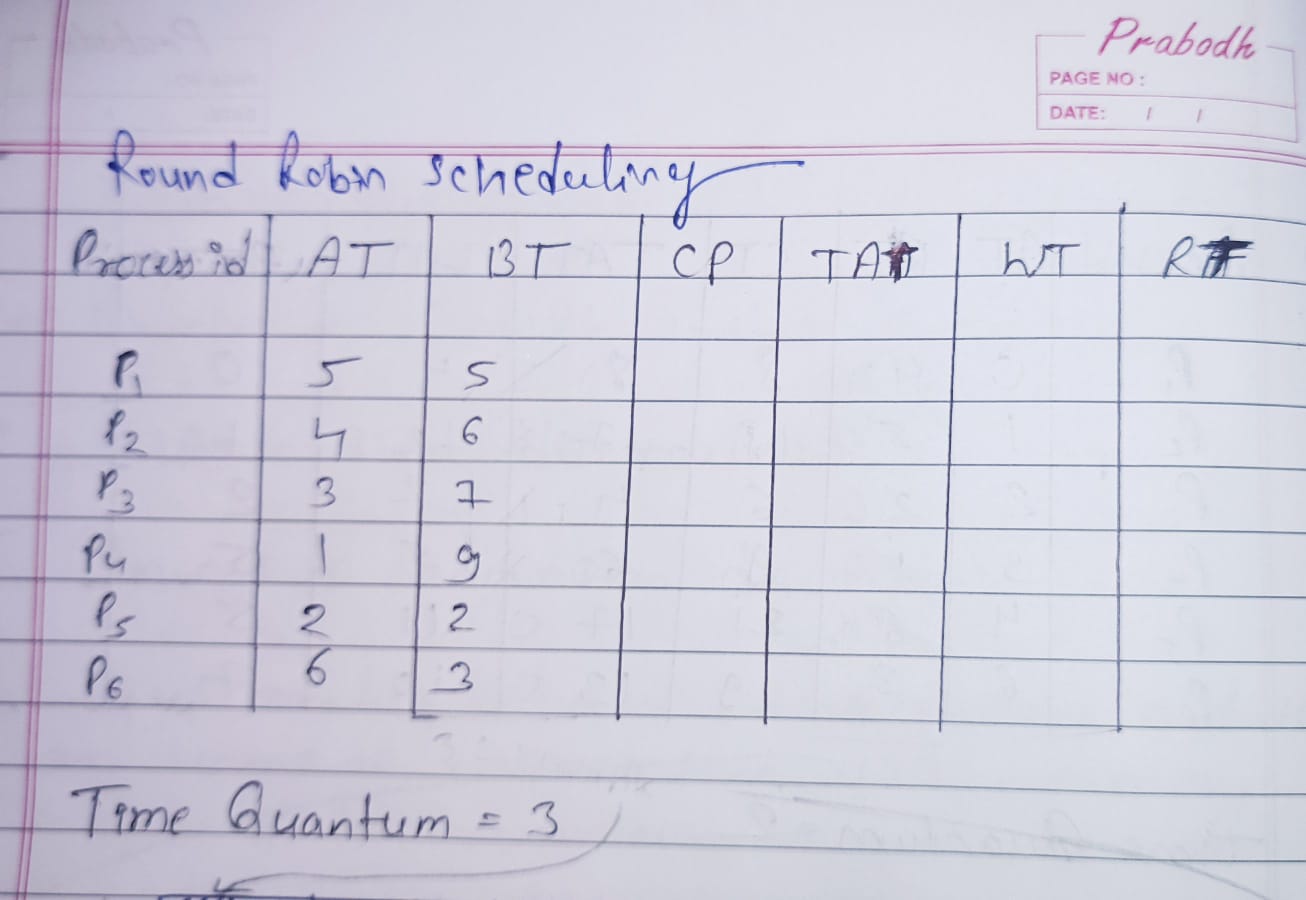 Prabodh
PAGE NO :
DATE: / /
Round Robin Scheduling
Process id AT BT CP TAT WT RT
P1 5 5
P2 4 6
P3 3 7
P4 1 9
P5 2 2
P6 6 3
Time Quantum = 3